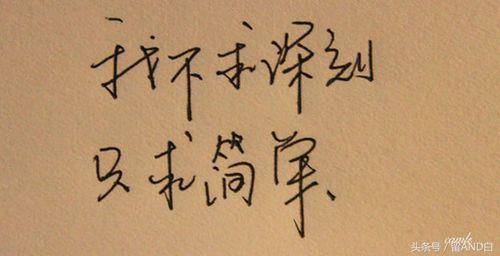 我不求深刻
只求简单、
cawk
头条号／留AND白